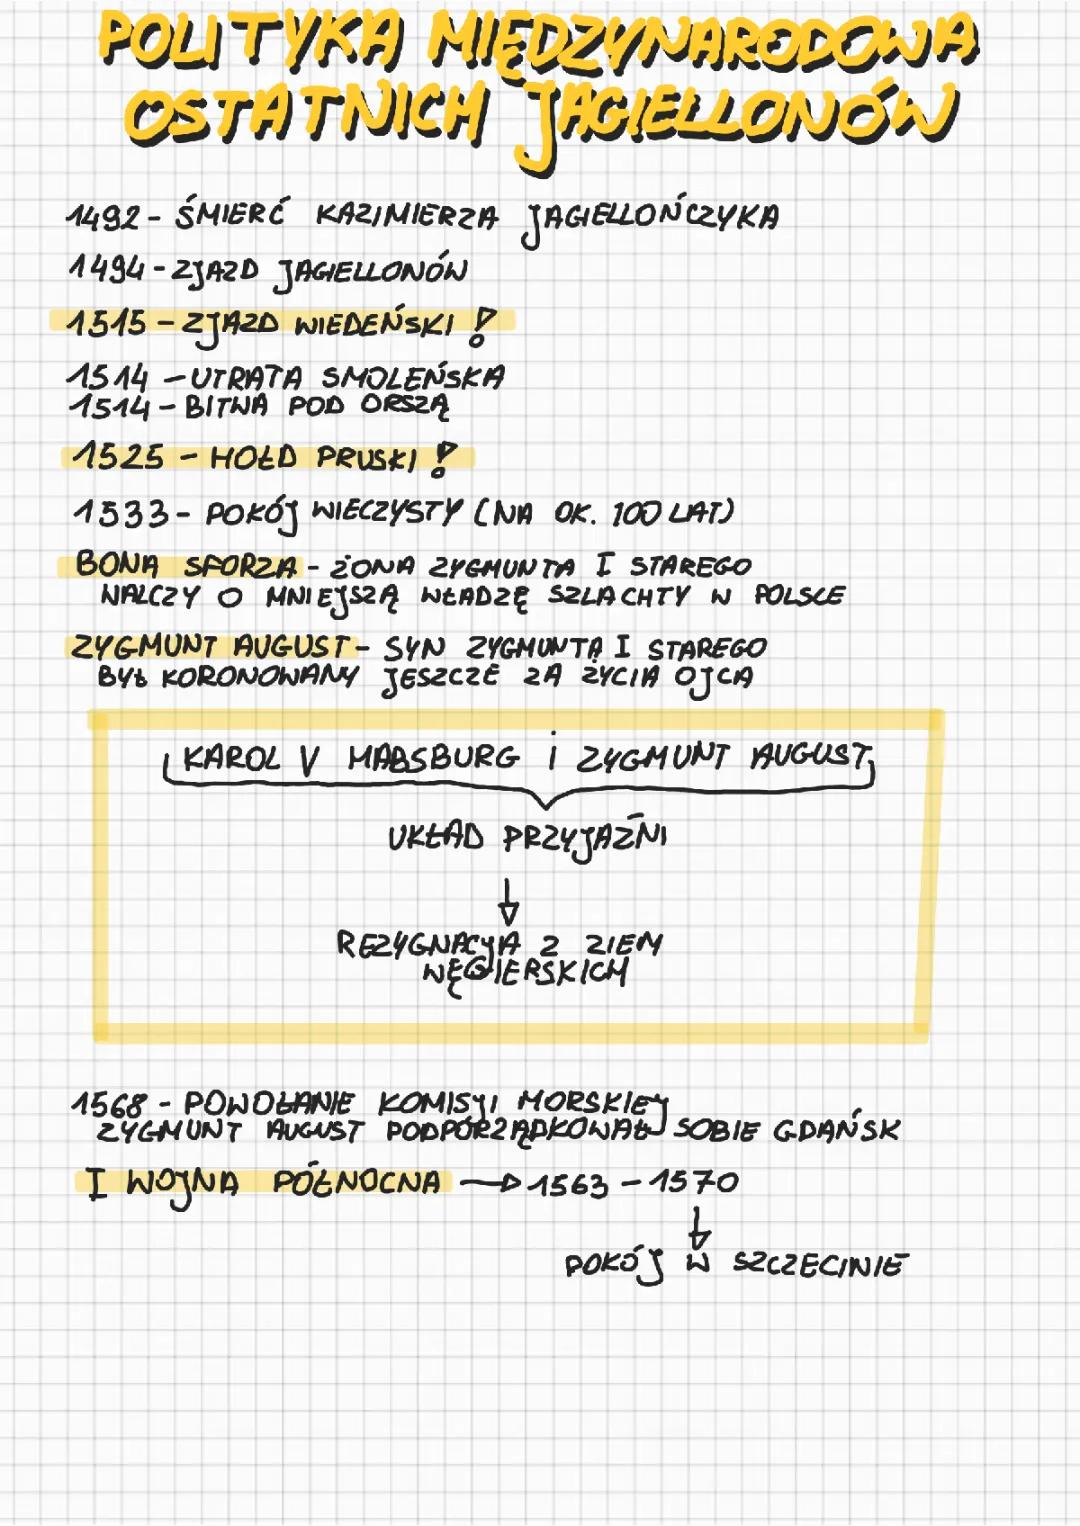 POLITYKA MIĘDZYNARODOWA
OSTATNICH JAGIELLONÓW
1492 - ŚMIERĆ KAZIMIERZA JAGIELLOŃCZYKA
1494 - ZJAZD JAGIELLONÓW
1515 - ZJAZD WIEDEŃSKI !
1514 - UTRATA SMOLEŃSKA
1514 - BITWA POD ORSZĄ
1525 - HOŁD PRUSKI !
1533 - POKÓJ WIECZYSTY (NA OK. 100 LAT)
BONA SFORZA - ŻONA ZYGMUNTA I STAREGO
WALCZY O MNIEJSZĄ WŁADZĘ SZLACHTY W POLSCE
ZYGMUNT AUGUST - SYN ZYGMUNTA I STAREGO
BYŁ KORONOWANY JESZCZE ZA ŻYCIA OJCA
KAROL V HABSBURG i ZYGMUNT AUGUST
UKŁAD PRZYJAŹNI
REZYGNACJA Z ZIEM
WĘGIERSKICH
1568 - POWOŁANIE KOMISJI MORSKIEJ
ZYGMUNT AUGUST PODPORZĄDKOWAŁ SOBIE GDAŃSK
I WOJNA PÓŁNOCNA → 1563 - 1570
POKÓJ W SZCZECINIE